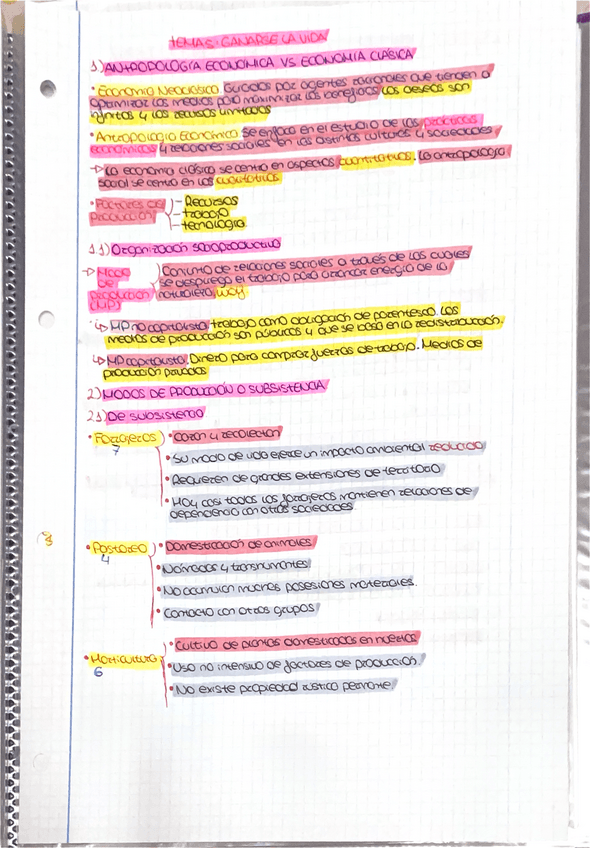 TEMA5: GANARSE LA VIDA
1) ANTROPOLOGÍA ECONÓMICA VS ECONOMÍA CLÁSICA
• Economía Neoclásica: Guiados por agentes racionales que tienden a
optimizar los medios para maximizar los beneficios. Los deseos son
infintos y los recursos limitados
• Antropología Económica: Se enfoca en el estudio de las prácticas
económicas y relaciones sociales en las distintas culturas y sociedades
→ La economía clásica se centra en aspectos cuantitativos. La antropología
social se centra en los cualitativos
• Factores de
producción
- Recursos
- trabajo
- tecnología
1.1) Organización socioproductiva
→ Modo
de
producción
(MP)
Conjunto de relaciones sociales a través de las cuales
se despliega el trabajo para arrancar energía de la
naturaleza. Wolf
↳ MP no capitalista: trabajo como obligación de parentesco. Los
medios de producción son públicos y que se basa en la redistribución.
↳ MP capitalista: Dinero para comprar fuerzas de trabajo. Medios de
producción privados
2) MODOS DE PRODUCCIÓN O SUBSISTENCIA
2.1) De subsistencia
• Forrajeros
7
• Cazan y recolectan
• Su modo de vida ejerce un impacto ambiental reducido
• Requieren de grandes extensiones de territorio
• Hoy casi todos los forrajeros mantienen relaciones de
dependencia con otras sociedades
• Pastoreo
4
• Domesticación de animales
• Nómadas y transhumantes
• No acumulan muchas posesiones materiales.
• Contacto con otros grupos
• Horticultura
6
• Cultivo de plantas domesticadas en huertos
• Uso no intensivo de factores de producción.
• No existe propiedad rústica permante